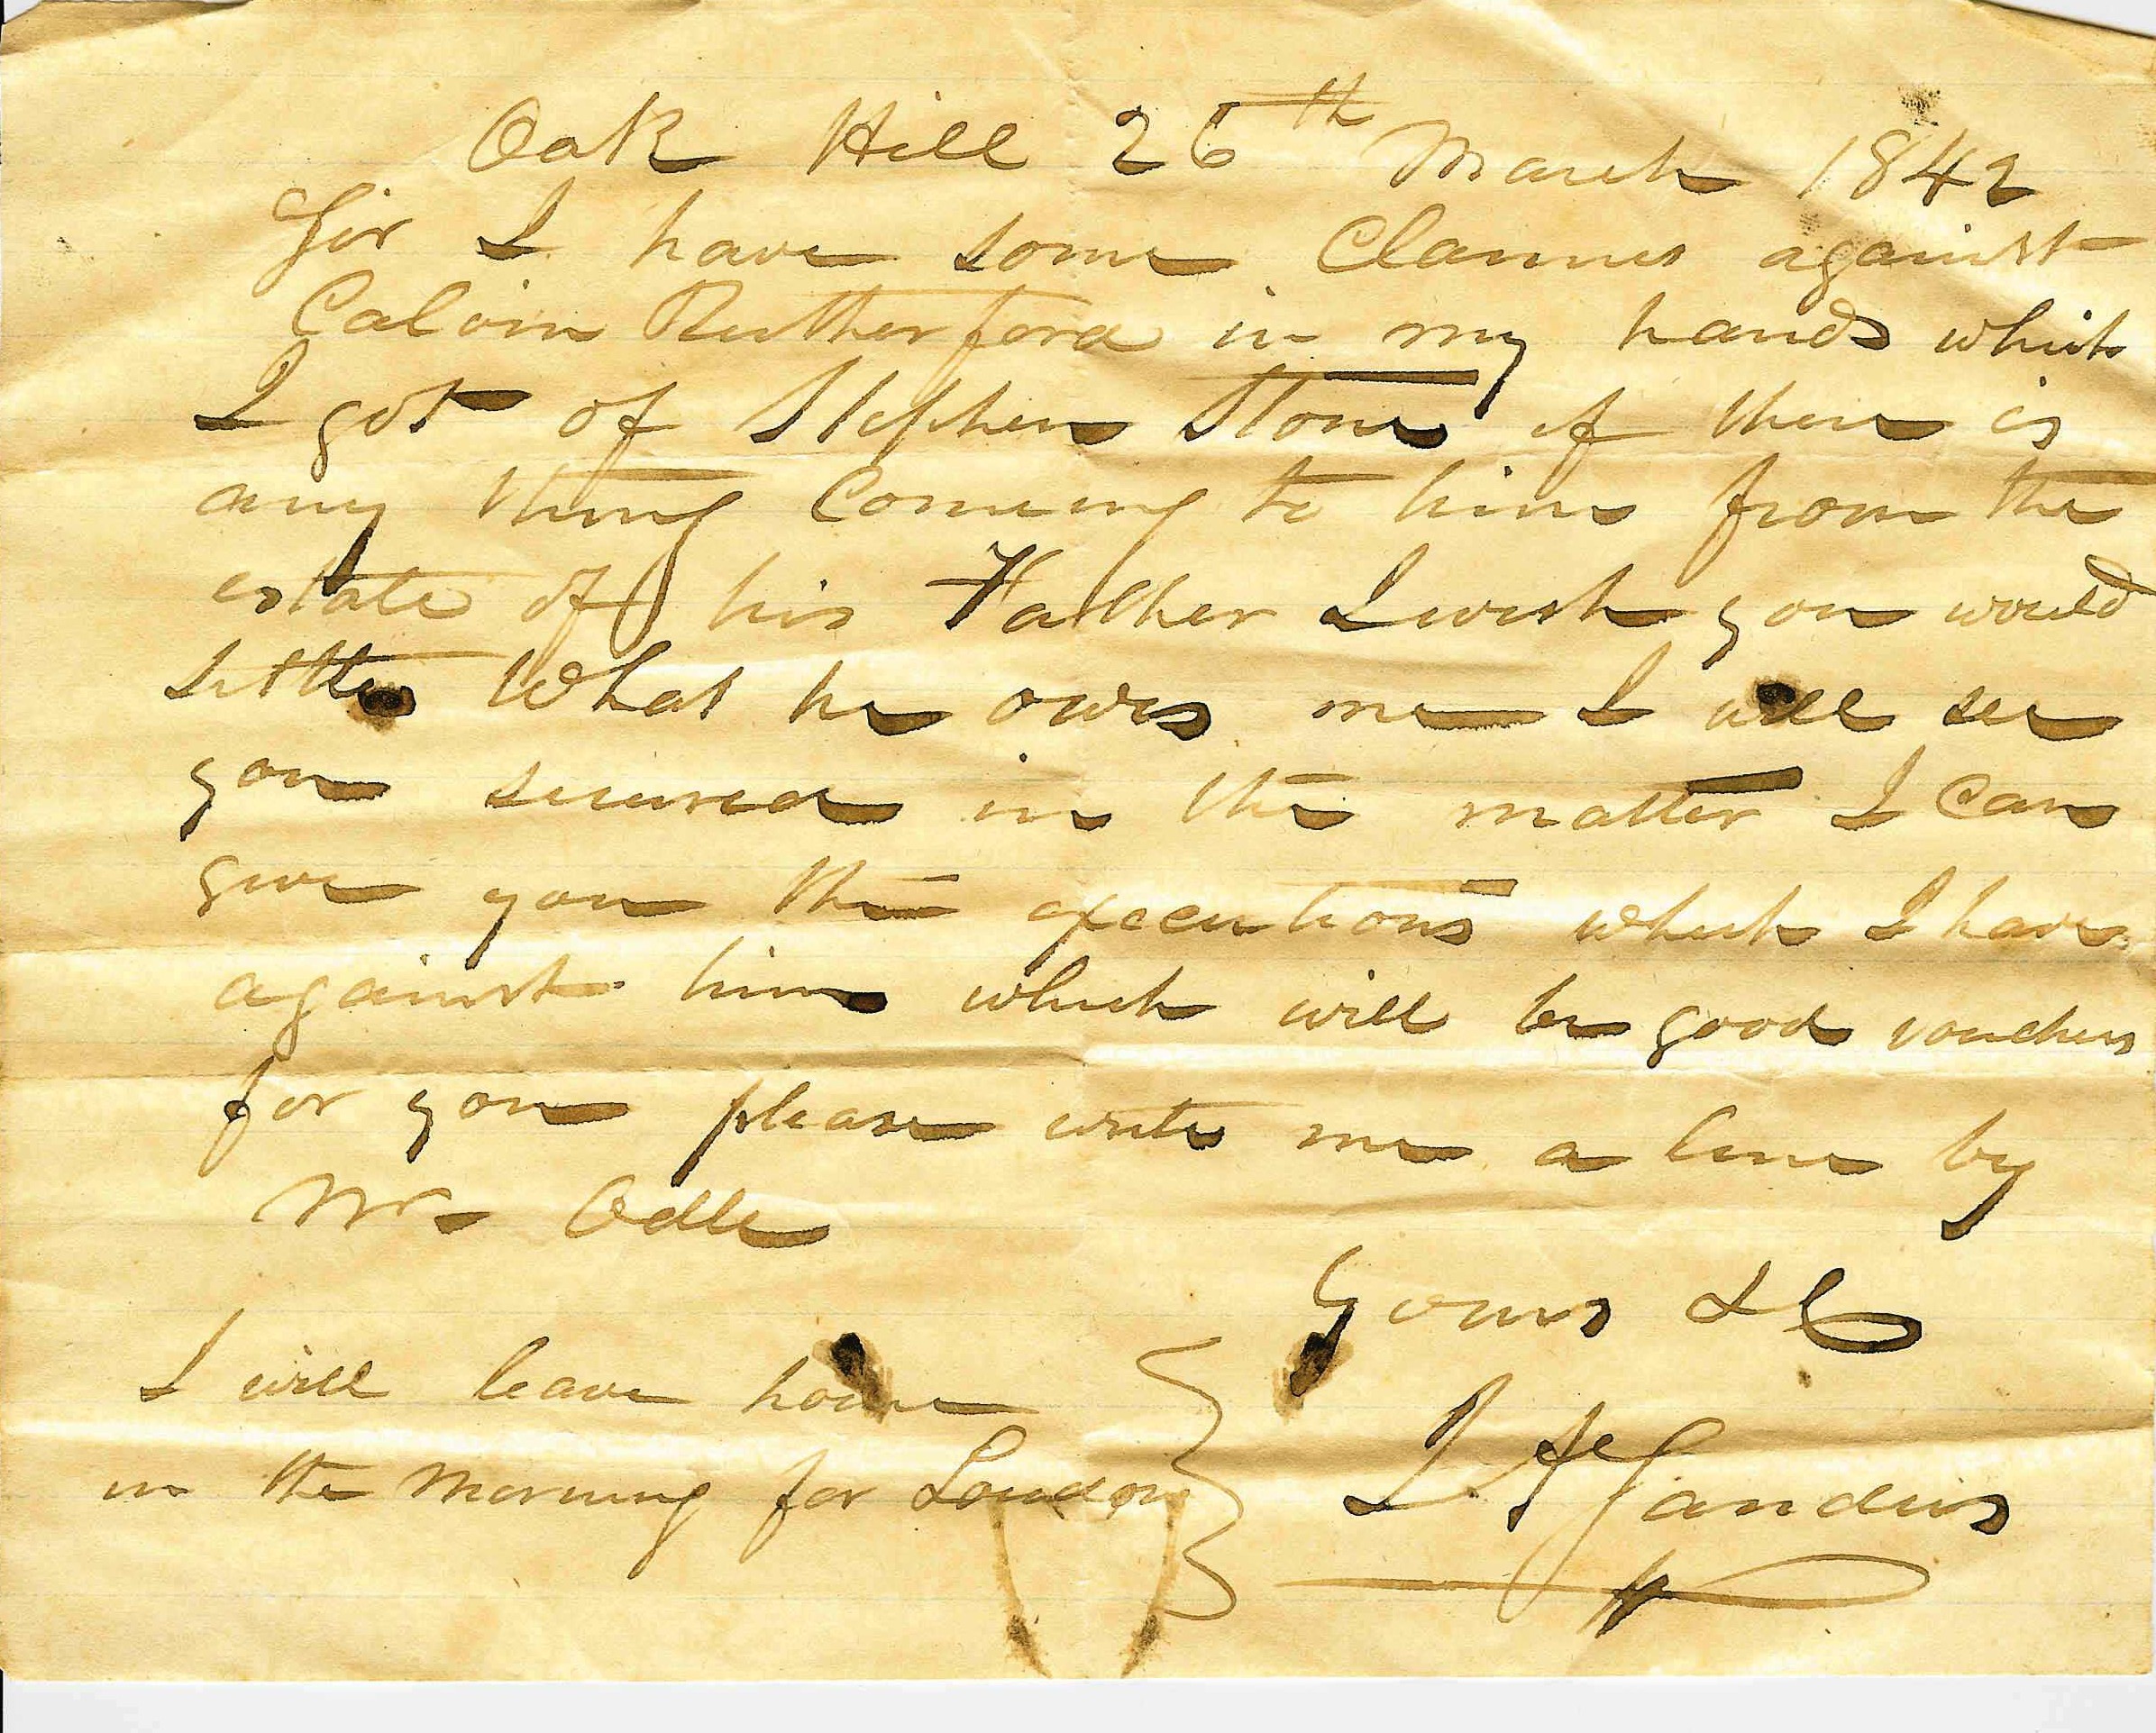 Oak Hill 26th March 1842
Sir I have some Claimes against
Calvin Rutherford in my hands which
I got of Stephen Stone if there is
any thing Comeing to him from the
estate of his Father I wish you would
settle What he owes me I will see
you secured in the matter I Can
give you the executions which I have
against him which will be good vouchers
for you please write me a line by
Mr Odle
Yours &C
I will leave home
in the Morning for London